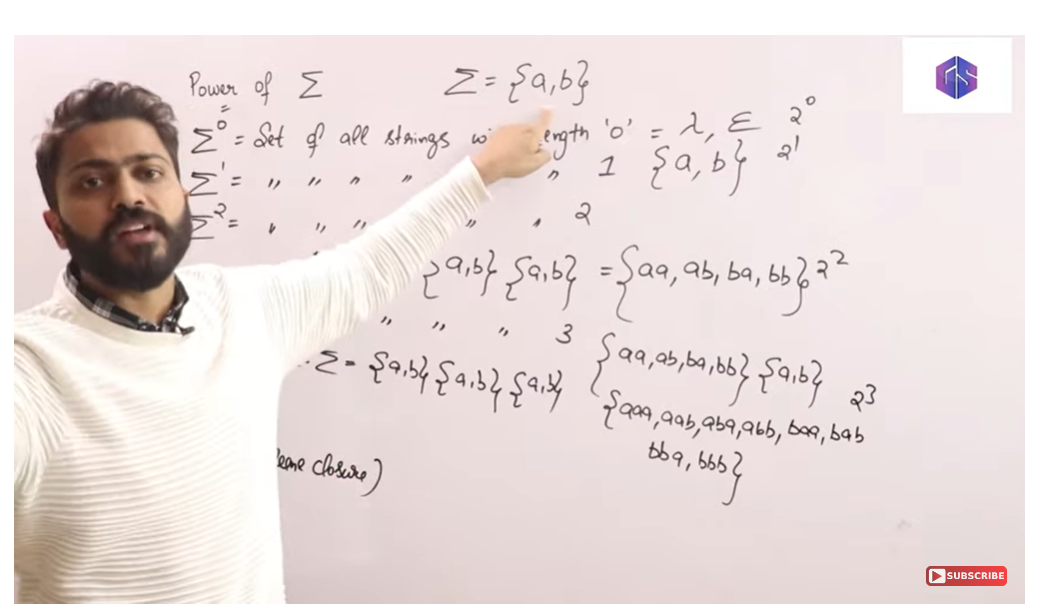 Power of Σ Σ = {a,b}
Σ⁰ = Set of all strings wi ength '0' = λ, Ɛ 2⁰
Σ¹ = " " " " " 1 {a, b} 2¹
Σ² = " " " " " 2
{a,b} {a,b} = {aa, ab, ba, bb} 2²
" " " 3 {aa,ab,ba,bb} {a,b}
.Σ = {a,b} {a,b} {a,b} 2³
{aaa,aab,aba,abb, baa, bab
bba, bbb}
eene closure)
SUBSCRIBE